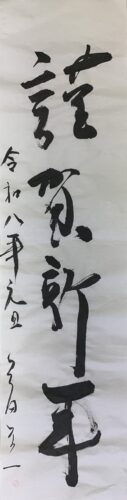 謹賀新年
令和八年元旦